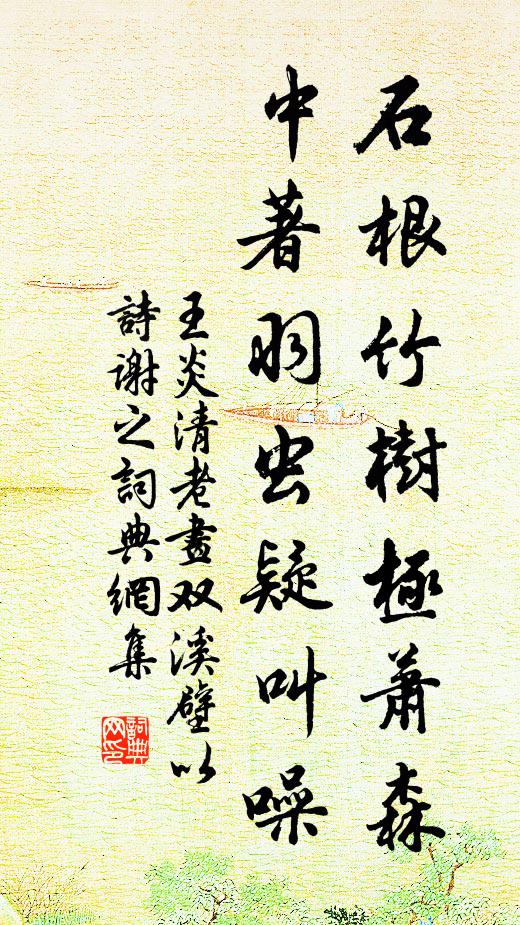 石根竹樹極蕭森
中著羽虫疑叫噪
王炎清老畫双溪壁以
詩谢之詞典網集
詞典
网印